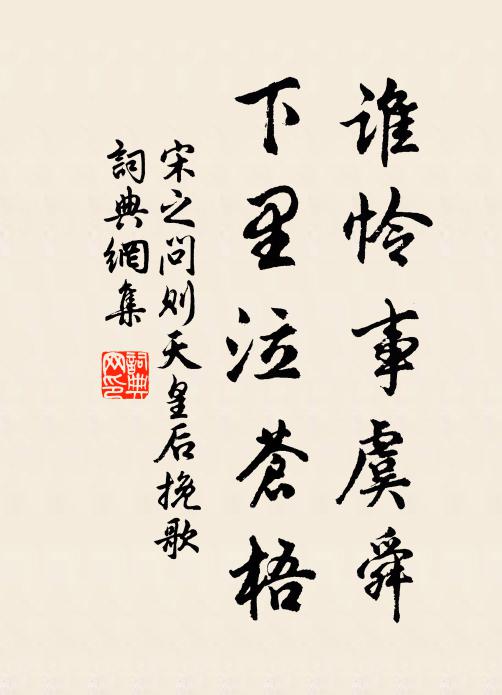 誰怜事虞舜
下里泣蒼梧
宋之问则天皇后挽歌
詞典網集
詞典网印